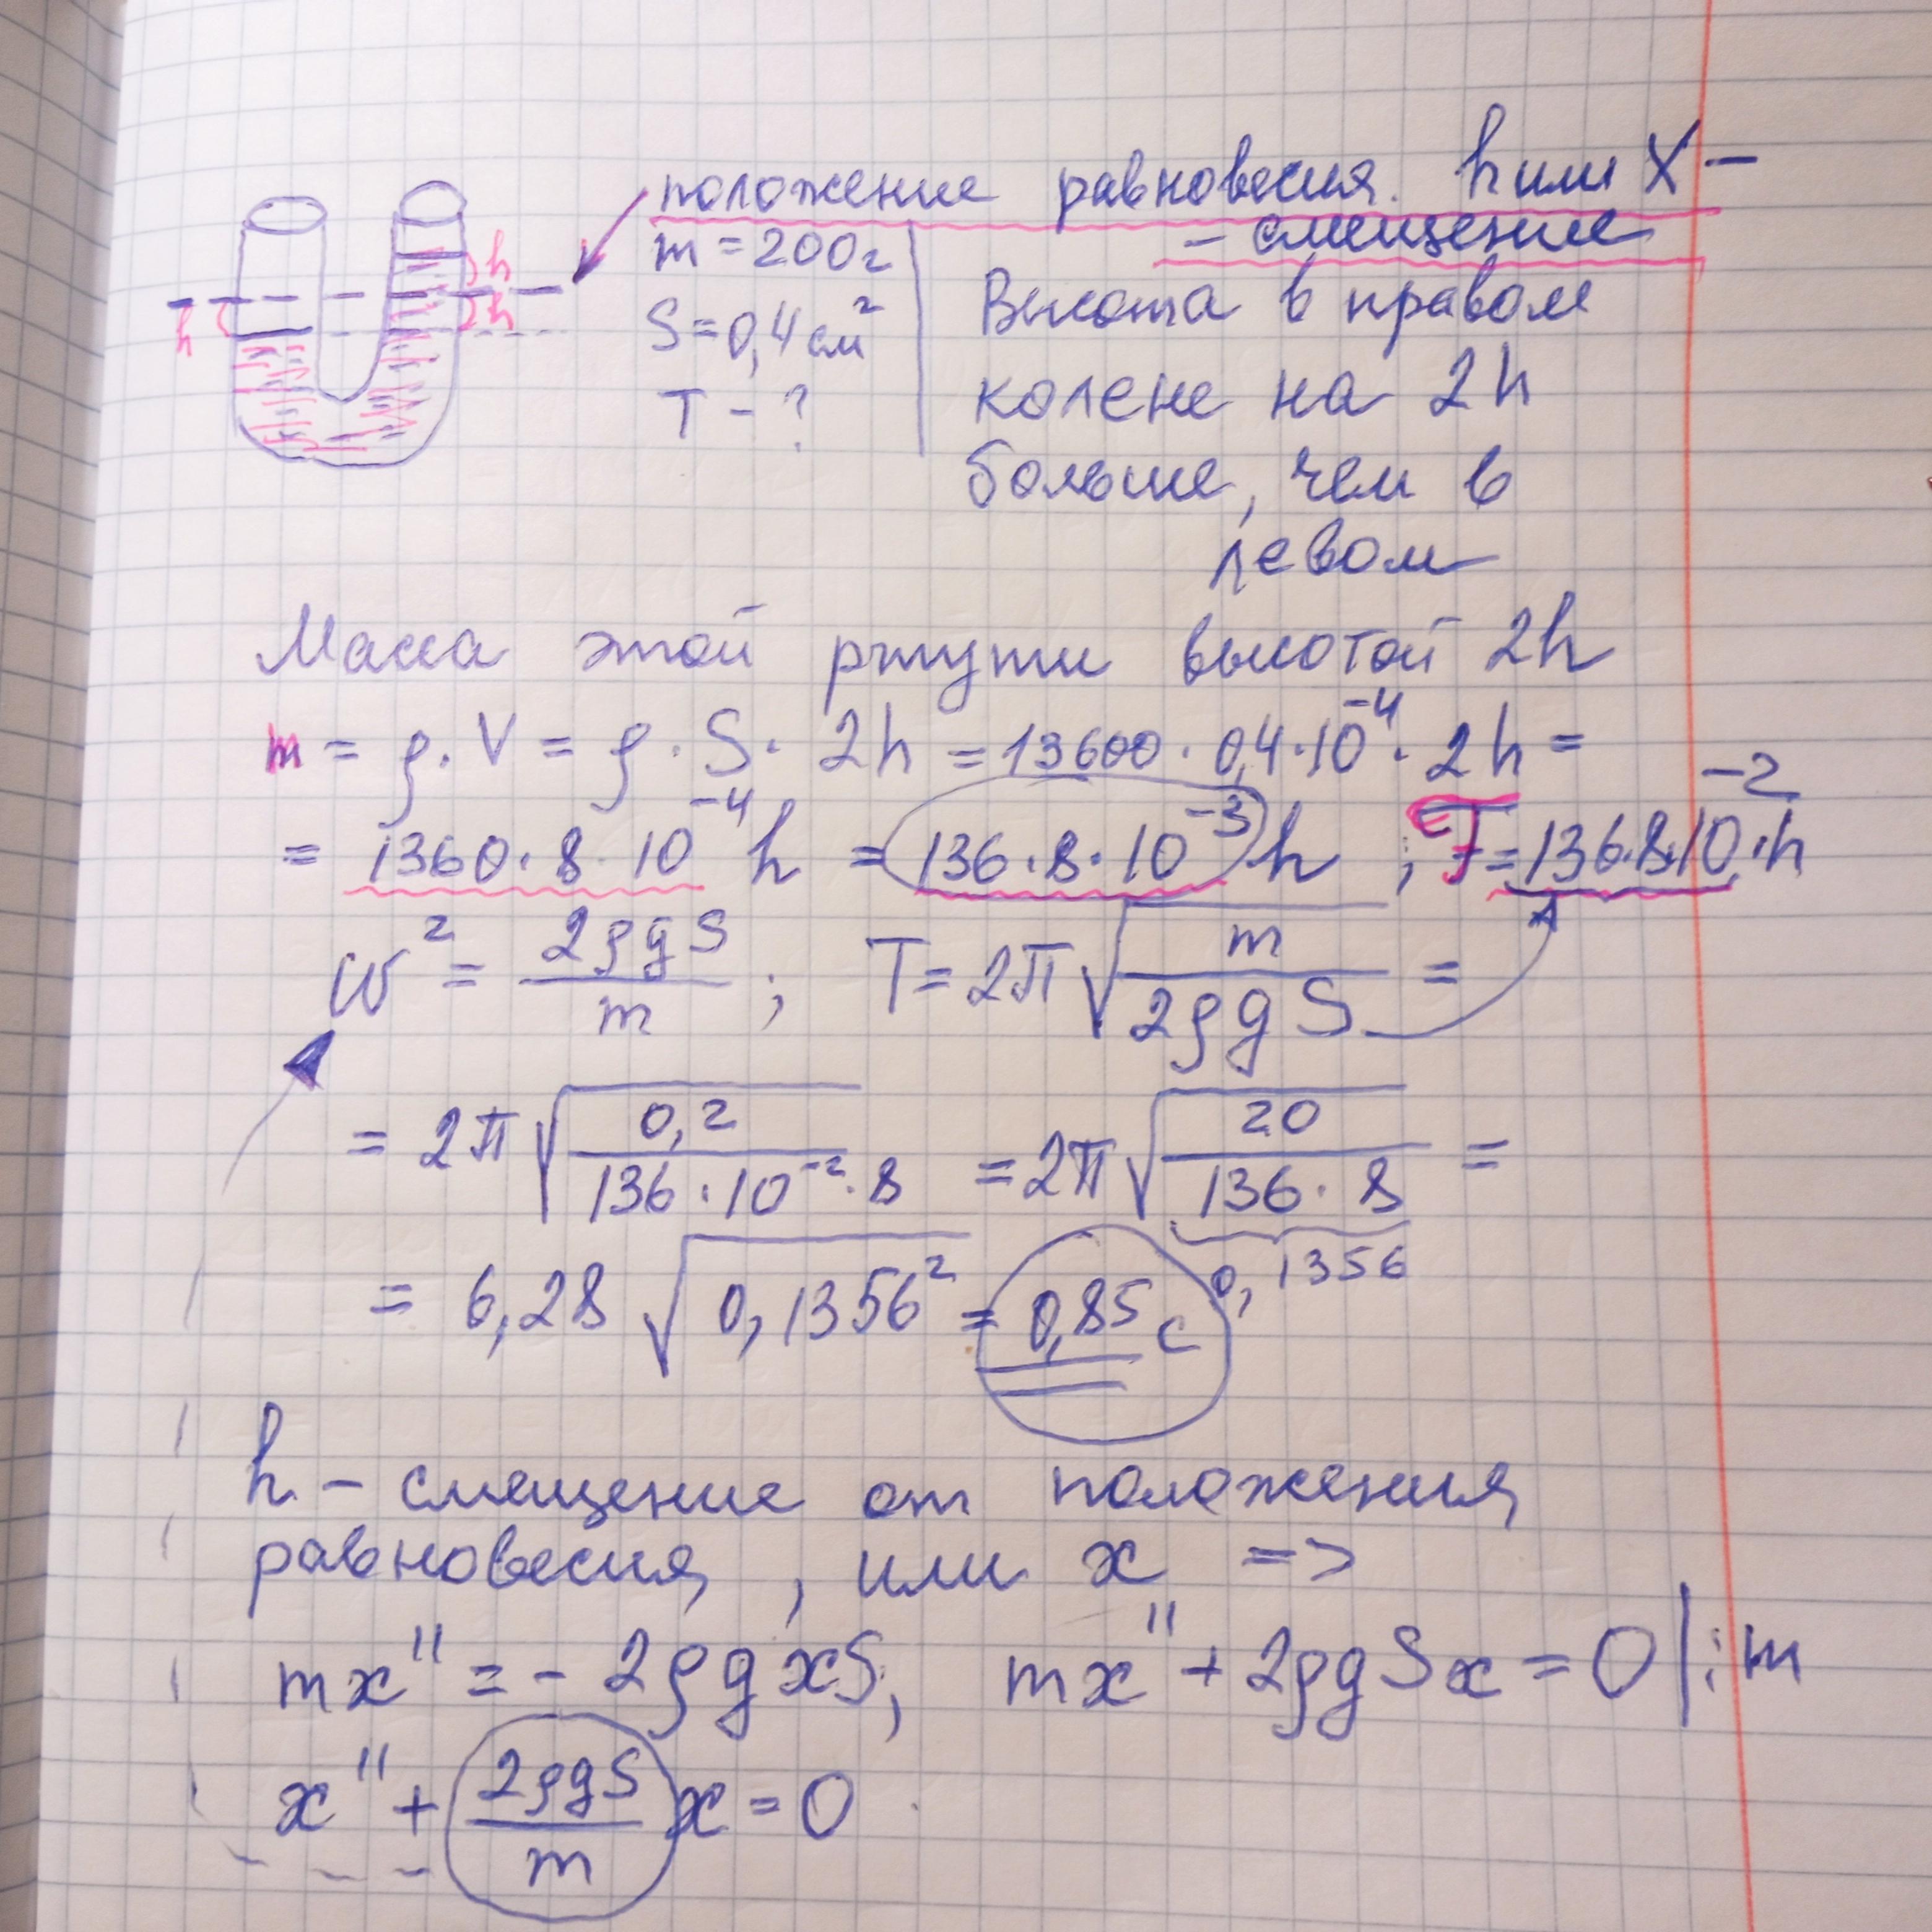 положение равновесия. h или X –
– смещение
m = 200г
S = 0,4 см²
T – ?
h
h
h
Высота в правом
колене на 2h
больше, чем в
левом
Масса этой ртути высотой 2h
m = ρ · V = ρ · S · 2h = 13600 · 0,4 · 10⁻⁴ · 2h =
= 1360 · 8 · 10⁻⁴ h = 136 · 8 · 10⁻³ h ; F = 136 · 8 · 10⁻² · h
W² = 2ρgS / m ; T = 2π √(m / 2ρgS) =
= 2π √(0,2 / 136 · 10⁻² · 8) = 2π √(20 / 136 · 8) =
0,1356
= 6,28 √(0,1356²) = 0,85 с
h – смещение от положения
равновесия, или x =>
mx'' = – 2ρgxS, mx'' + 2ρgSx = 0 | : m
x'' + (2ρgS / m) x = 0